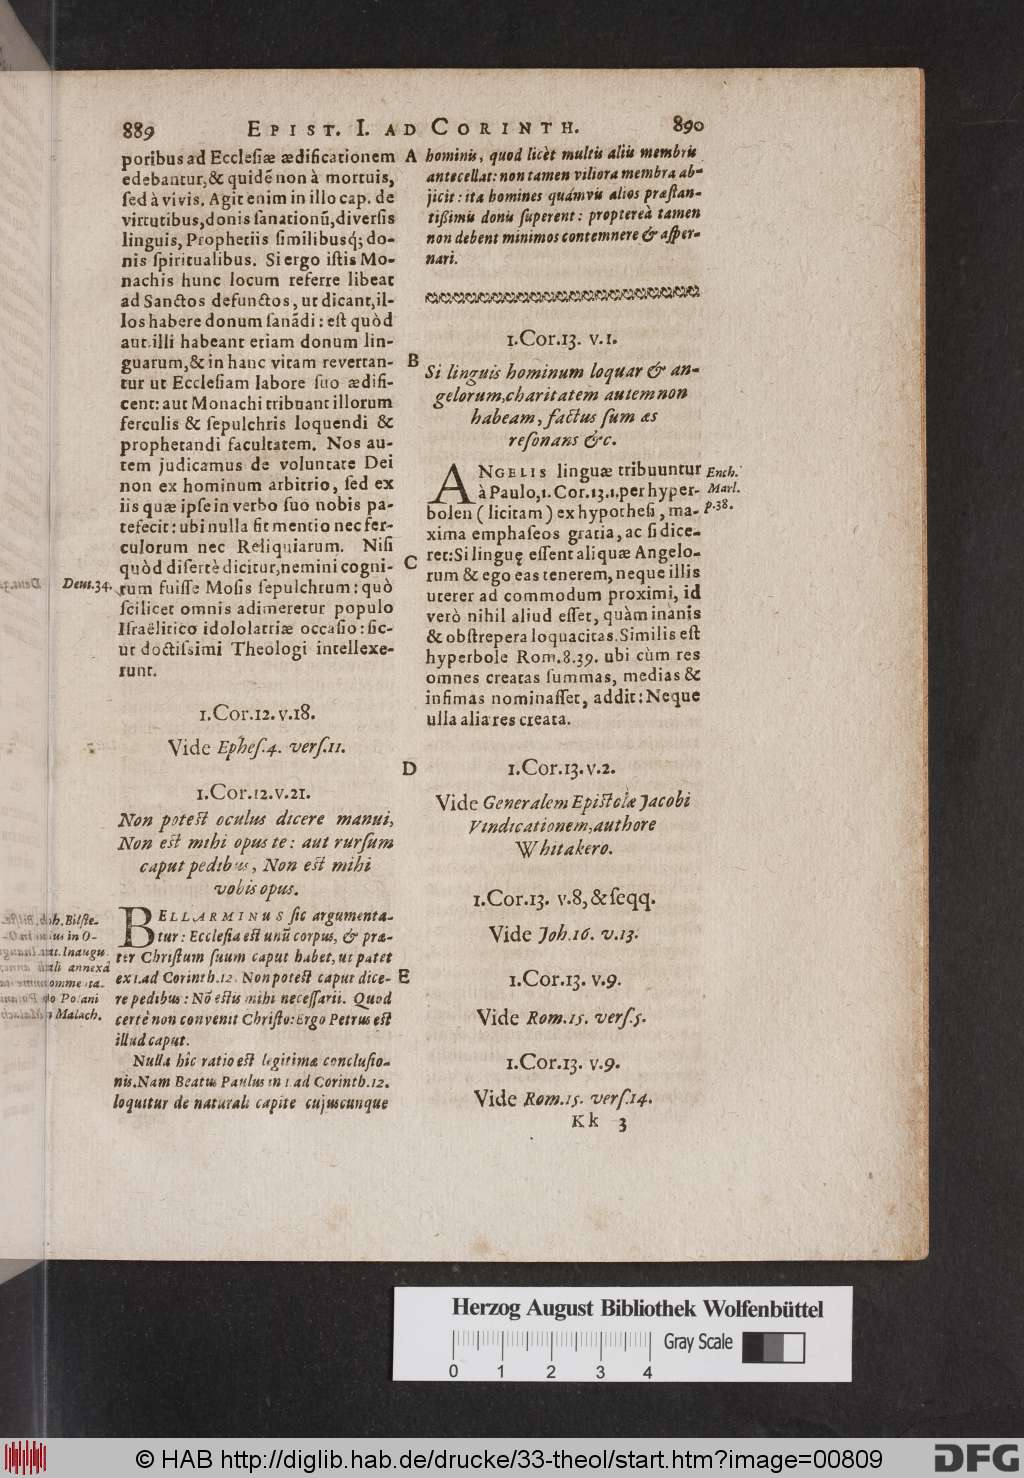 889 EPIST. I. AD CORINTH. 890
poribus ad Ecclesiæ ædificationem
edebantur, & quidē non à mortuis,
sed à vivis. Agit enim in illo cap. de
virtutibus, donis sanationū, diversis
linguis, Prophetiis similibusq́; do-
nis spiritualibus. Si ergo istis Mo-
nachis hunc locum referre libeat
ad Sanctos defunctos, ut dicant, il-
los habere donum sanādi: est quòd
aut illi habeant etiam donum lin-
guarum, & in hanc vitam revertan-
tur ut Ecclesiam labore suo ædifi-
cent: aut Monachi tribuant illorum
ferculis & sepulchris loquendi &
prophetandi facultatem. Nos au-
tem judicamus de voluntate Dei
non ex hominum arbitrio, sed ex
iis quæ ipse in verbo suo nobis pa-
tefecit: ubi nulla fit mentio nec fer-
culorum nec Reliquiarum. Nisi
quòd disertè dicitur, nemini cogni-
Deut.34. tum fuisse Mosis sepulchrum: quò
scilicet omnis adimeretur populo
Israëlitico idololatriæ occasio: sic-
ut doctissimi Theologi intellexe-
runt.
1.Cor.12.v.18.
Vide Ephes.4. vers.11.
1.Cor.12.v.21.
Non potest oculus dicere manui,
Non est mihi opus te: aut rursum
caput pedibus, Non est mihi
vobis opus.
BELLARMINUS sic argumenta-
tur: Ecclesia est unū corpus, & præ-
ter Christum suum caput habet, ut patet
ex 1. ad Corinth. 12. Non potest caput dice-
re pedibus: Nō estis mihi necessarii. Quod
certè non convenit Christo: Ergo Petrus est
illud caput.
Nulla hîc ratio est legitimæ conclusio-
nis. Nam Beatus Paulus in 1. ad Corinth. 12.
loquitur de naturali capite cujuscunque
A hominis, quod licèt multis aliis membris
antecellat: non tamen viliora membra ab-
jicit: ita homines quámvis alios præstan-
tißimis donis superent: propterea̍ tamen
non debent minimos contemnere & asper-
nari.
1.Cor.13. v.1.
B Si linguis hominum loquar & an-
gelorum, charitatem autem non
habeam, factus sum æs
resonans &c.
ANGELIS linguæ tribuuntur
à Paulo, 1. Cor.13.1. per hyper-
bolen (licitam) ex hypothesi, ma-
xima emphaseos gratia, ac si dice-
ret: Si linguę essent aliquæ Angelo-
C rum & ego eas tenerem, neque illis
uterer ad commodum proximi, id
verò nihil aliud esset, quàm inanis
& obstrepera loquacitas. Similis est
hyperbole Rom.8.39. ubi cùm res
omnes creatas summas, medias &
infimas nominasset, addit: Neque
ulla alia res creata.
Ench.
Marl.
p.38.
D 1.Cor.13.v.2.
Vide Generalem Epistolæ Jacobi
Vindicationem, authore
Whitakero.
1.Cor.13. v.8, & seqq.
Vide Joh.16. v.13.
E 1.Cor.13. v.9.
Vide Rom.15. vers.5.
1.Cor.13. v.9.
Vide Rom.15. vers.14.
Kk 3
Herzog August Bibliothek Wolfenbüttel
Gray Scale
0 1 2 3 4
© HAB http://diglib.hab.de/drucke/33-theol/start.htm?image=00809
DFG